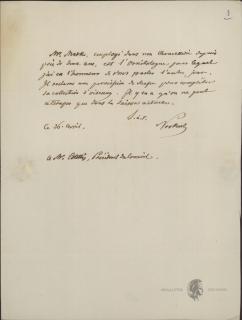 1
Mr. Matile, employé dans nos chancellerie depuis
près de deux ans, est l'ornithologue pour lequel
j'ai eu l'honneur de vous parler l'autre jour.
Il réclame une permission de chasse pour compléter
la collection d'oiseaux. Il y en a qu'on ne peut
attraper que dans la saison actuelle.
Ce 26 avril.
a Mr. , Président du conseil